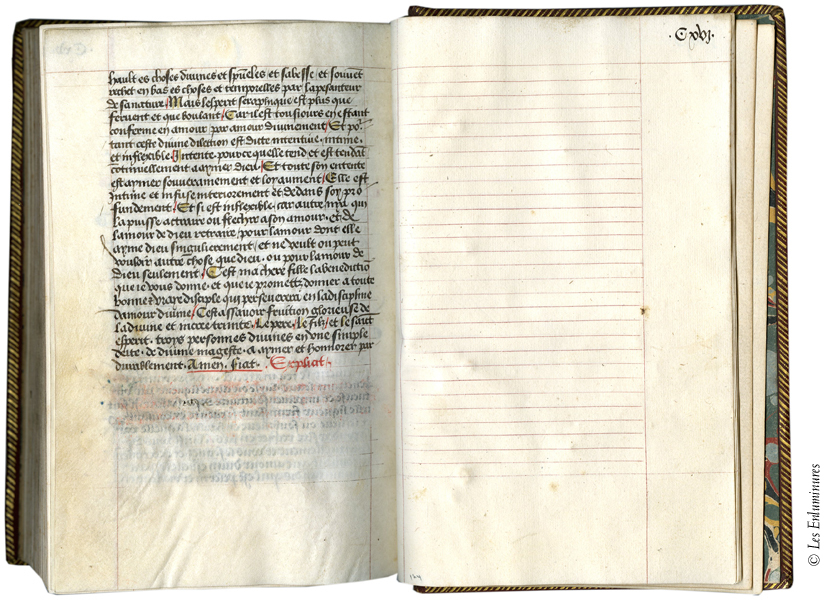 hault es choses divines et spūeles et sabesse et souvēt
rechet en bas es choses et temporelles par la pesanteur
de sa nature / Mais lesperit seraphique est plus que
fervent et que boulant / Car il est tousiours en estant
conforme en amour par amour divinement / Et po²
tant ceste divine dilection est dicte intentive · intime ·
et inflexible / Intente pource quelle tend et est tendāt
cōtinuellement a aymer dieu / Et toute son entente
est aymer souverainement et loyaument / Elle est
intime et infuse interiorement et dedans soy pro
fundement / Et si est inflexible · car autre nya qui
la puisse attraire ou flechir a son amour · et de
lamour de dieu retraire / pour lamour dont elle
ayme dieu singulierement / et ne veult ou peut
vouloir autre chose que dieu · ou pour lamour de
dieu seulement / Cest ma chere fille la benedictiō
que ie vous donne · et que ie promettz donner a toute
bonne et vraye disciple qui perseverera en la discipline
damour divine / Cest assavoir fruition glorieuse de
la divine et trinite · Le pere / le filz / et le sait
esperit · troys personnes divines en one simple
deite · de divine mageste · a aymer et honnorer par
durablement · Amen · fiat · Explicit ·
· Cxvj ·
© Les Enluminures